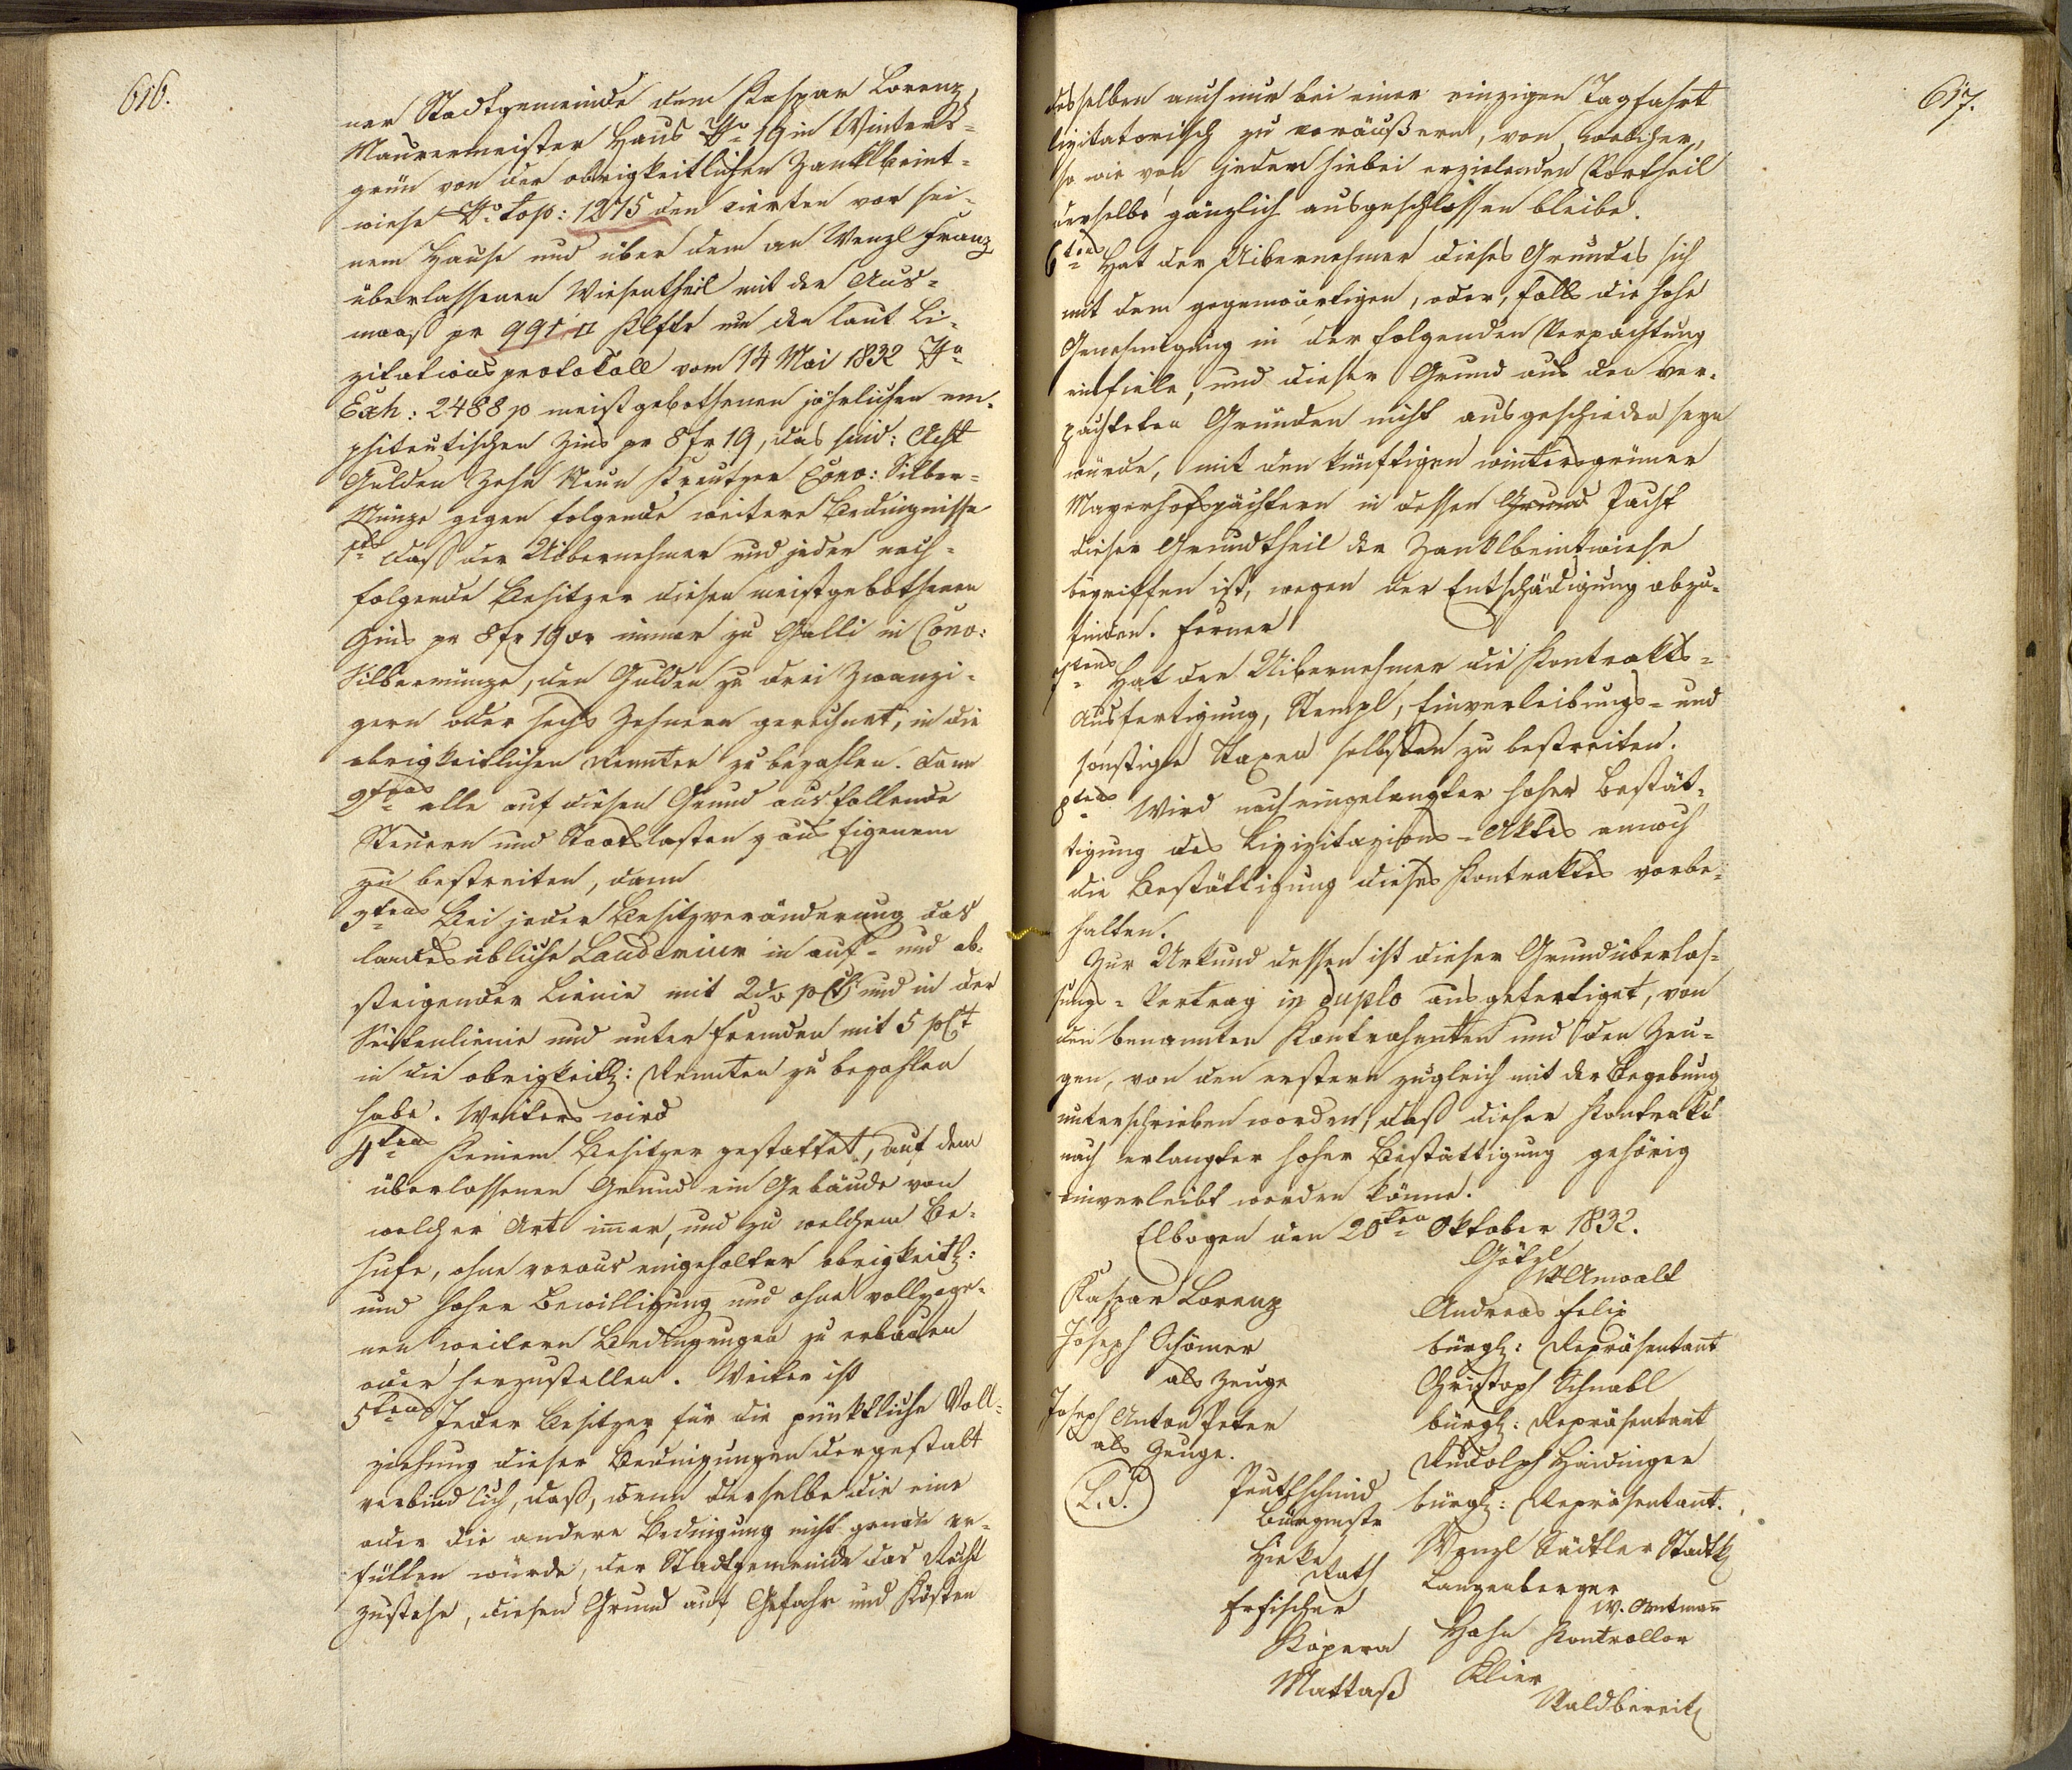 616.
ner Stadtgemeinde dem Kaspar Lorenz,
Maurermeister Haus No 19 in Winters-
grün von der obrigkeitlichen Zanklbeint-
wiese No top: 1275 den vierten vor sei-
nem Hause und über dem an Wenzl Franz
überlassenen Wiesentheil mit der Aus-
maaß pr 991 □ Klftr um den laut Li-
zitationsprotokoll vom 14 Mai 1832 No
Exh: 2488 po meistgebothenen jährlichen em-
phiteutischen Zins pr 8 fr 19, das sind: Acht
Gulden Zehn Neun Kreutzer Conv: Silber-
Münze gegen folgende weitere Bedingnisse
1tens daß der Uibernehmer und jeder nach-
folgende Besitzer diesen meistgebothenen
Zins pr 8 fr 19 xr immer zu Galli in Conv:
Silbermünze, den Gulden zu drei Zwanzi-
gern oder sechs Zehnern gerechnet, in die
obrigkeitlichen Rennten zu bezahlen. dann
2tens alle auf diesen Grund ausfallende
Steuern und Staatslasten aus Eigenem
zu bestreiten, dann
3tens Bei jeder Besitzveränderung das
landesübliche Laudemium in auf- und ab-
steigender Linie mit 2½ pCt und in der
Seitenlinie und unter Fremden mit 5 pCt
in die obrigkeitl: Rennten zu bezahlen
habe. Weiters wird
4tens Keinem Besitzer gestattet, auf dem
überlassenen Grund ein Gebäude von
welcher Art immer, und zu welchem Be-
hufe, ohne voraus eingeholter obrigkeitl:
und hoher Bewilligung und ohne vollzoge-
nen weitern Bedingungen zu erbauen
oder herzustellen. Weiter ist
5tens Jeder Besitzer für die pünktliche Voll-
ziehung dieser Bedingungen dergestalt
verbindlich, daß, wenn derselbe die eine
oder die andere Bedingung nicht genau er-
füllen würde, der Stadtgemeinde das Recht
zustehe, diesen Grund auf Gefahr und Kösten
617.
desselben auch nur bei einer einzigen Tagfahrt
lizitatorisch zu veräußern, von welcher,
so wie von jedem hiebei erzielenden Vortheil
derselbe gänzlich ausgeschlossen bleibe.
6tens Hat der Uibernehmer dieses Grundes sich
mit dem gegenwärtigen, oder, falls die hohe
Genehmigung in der folgenden Verpachtung
einfiele, und dieser Grund aus den ver-
pachteten Gründen nicht ausgeschieden seyn
würde, mit den künftigen wintersgrüner
Mayerhofspächtern in dessen Grund Pacht
dieser Grundtheil der Zanklbeintwiese
begriffen ist, wegen der Entschädigung abzu-
finden. Ferner
7tens Hat der Uibernehmer die Kontrakts-
Ausfertigung, Stempl, Einverleibungs- und
sonstige Taxen selbsten zu bestreiten.
8tens Wird nach eingelangter hoher Bestät-
tigung des Lizitazions-Aktes annoch
die Bestättigung dieses Kontraktes vorbe-
halten.
Zur Urkund dessen ist dieser Grundüberlas-
sungs-Vertrag in duplo ausgefertiget, von
den benannten Kontrahenten und den Zeu-
gen, von den erstern zugleich mit der Begebung
unterschrieben worden, daß dieser Kontrakt
nach erlangter hoher Bestättigung gehörig
einverleibt werden könne.
Elbogen den 20ten Oktober 1832.
Götzl
Anwalt
Kaspar Lorenz
Andreas Felix
Joseph Schömer
bürgl: Repräsentant
als Zeuge
Christoph Schnabl
Joseph Anton Peter
bürgl: Repräsentant
als Zeuge.
Rudolph Haidinger
(L.S.)
Peuthschmid
bürgl: Repräsentant.
Bürgmstr
Wenzl Sädtler Stadtk
Rath
Langenberger
W. Amtmann
Erfischer
Hahn Kontrollor
Kopera
Klier
Mattaß
Waldbereit